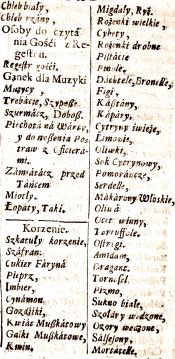 Chleb biały,
Osoby do czytá-
nia Gości z Re-
gestru.
Regestr gości.
Ganek dla Muzyki
Mięycy,
Trębácze, Szypośze
Szurmácz, Dobosz.
Piechotá ná Wárcy
y do nośenia Po-
traw z Officierá-
mi.
Zámiátácz przed
Táńcem
Miotły.
Łopaty, Taki.
Korzenie.
Szkatuły korzenie,
Száfran.
Cukier Fáryná
Pieprz,
Imbier,
Cynámon.
Gozdźiki,
Kwiát Muszkátowy
Gałki Muszkátowe,
Kmin,
Migdały, Ryż.
Rożenki wielkie,
Cybety,
Rożenki drobne
Pistácie
Pinole,
Dáchtele, Brunelle,
Figi,
Kásztány,
Kápáry,
Cytryny świeże,
Limonie,
Oliwki,
Sok Cytrynowy,
Pomoráncze,
Serdelle,
Mákárony Włoskie,
Oliwá
Ocet winny,
Tartuffole.
Amidam,
Dragant.
Tornesel.
Pizmo,
Sukno białe,
Ozory wędzone,
Sálsesony,
Mortadelle.